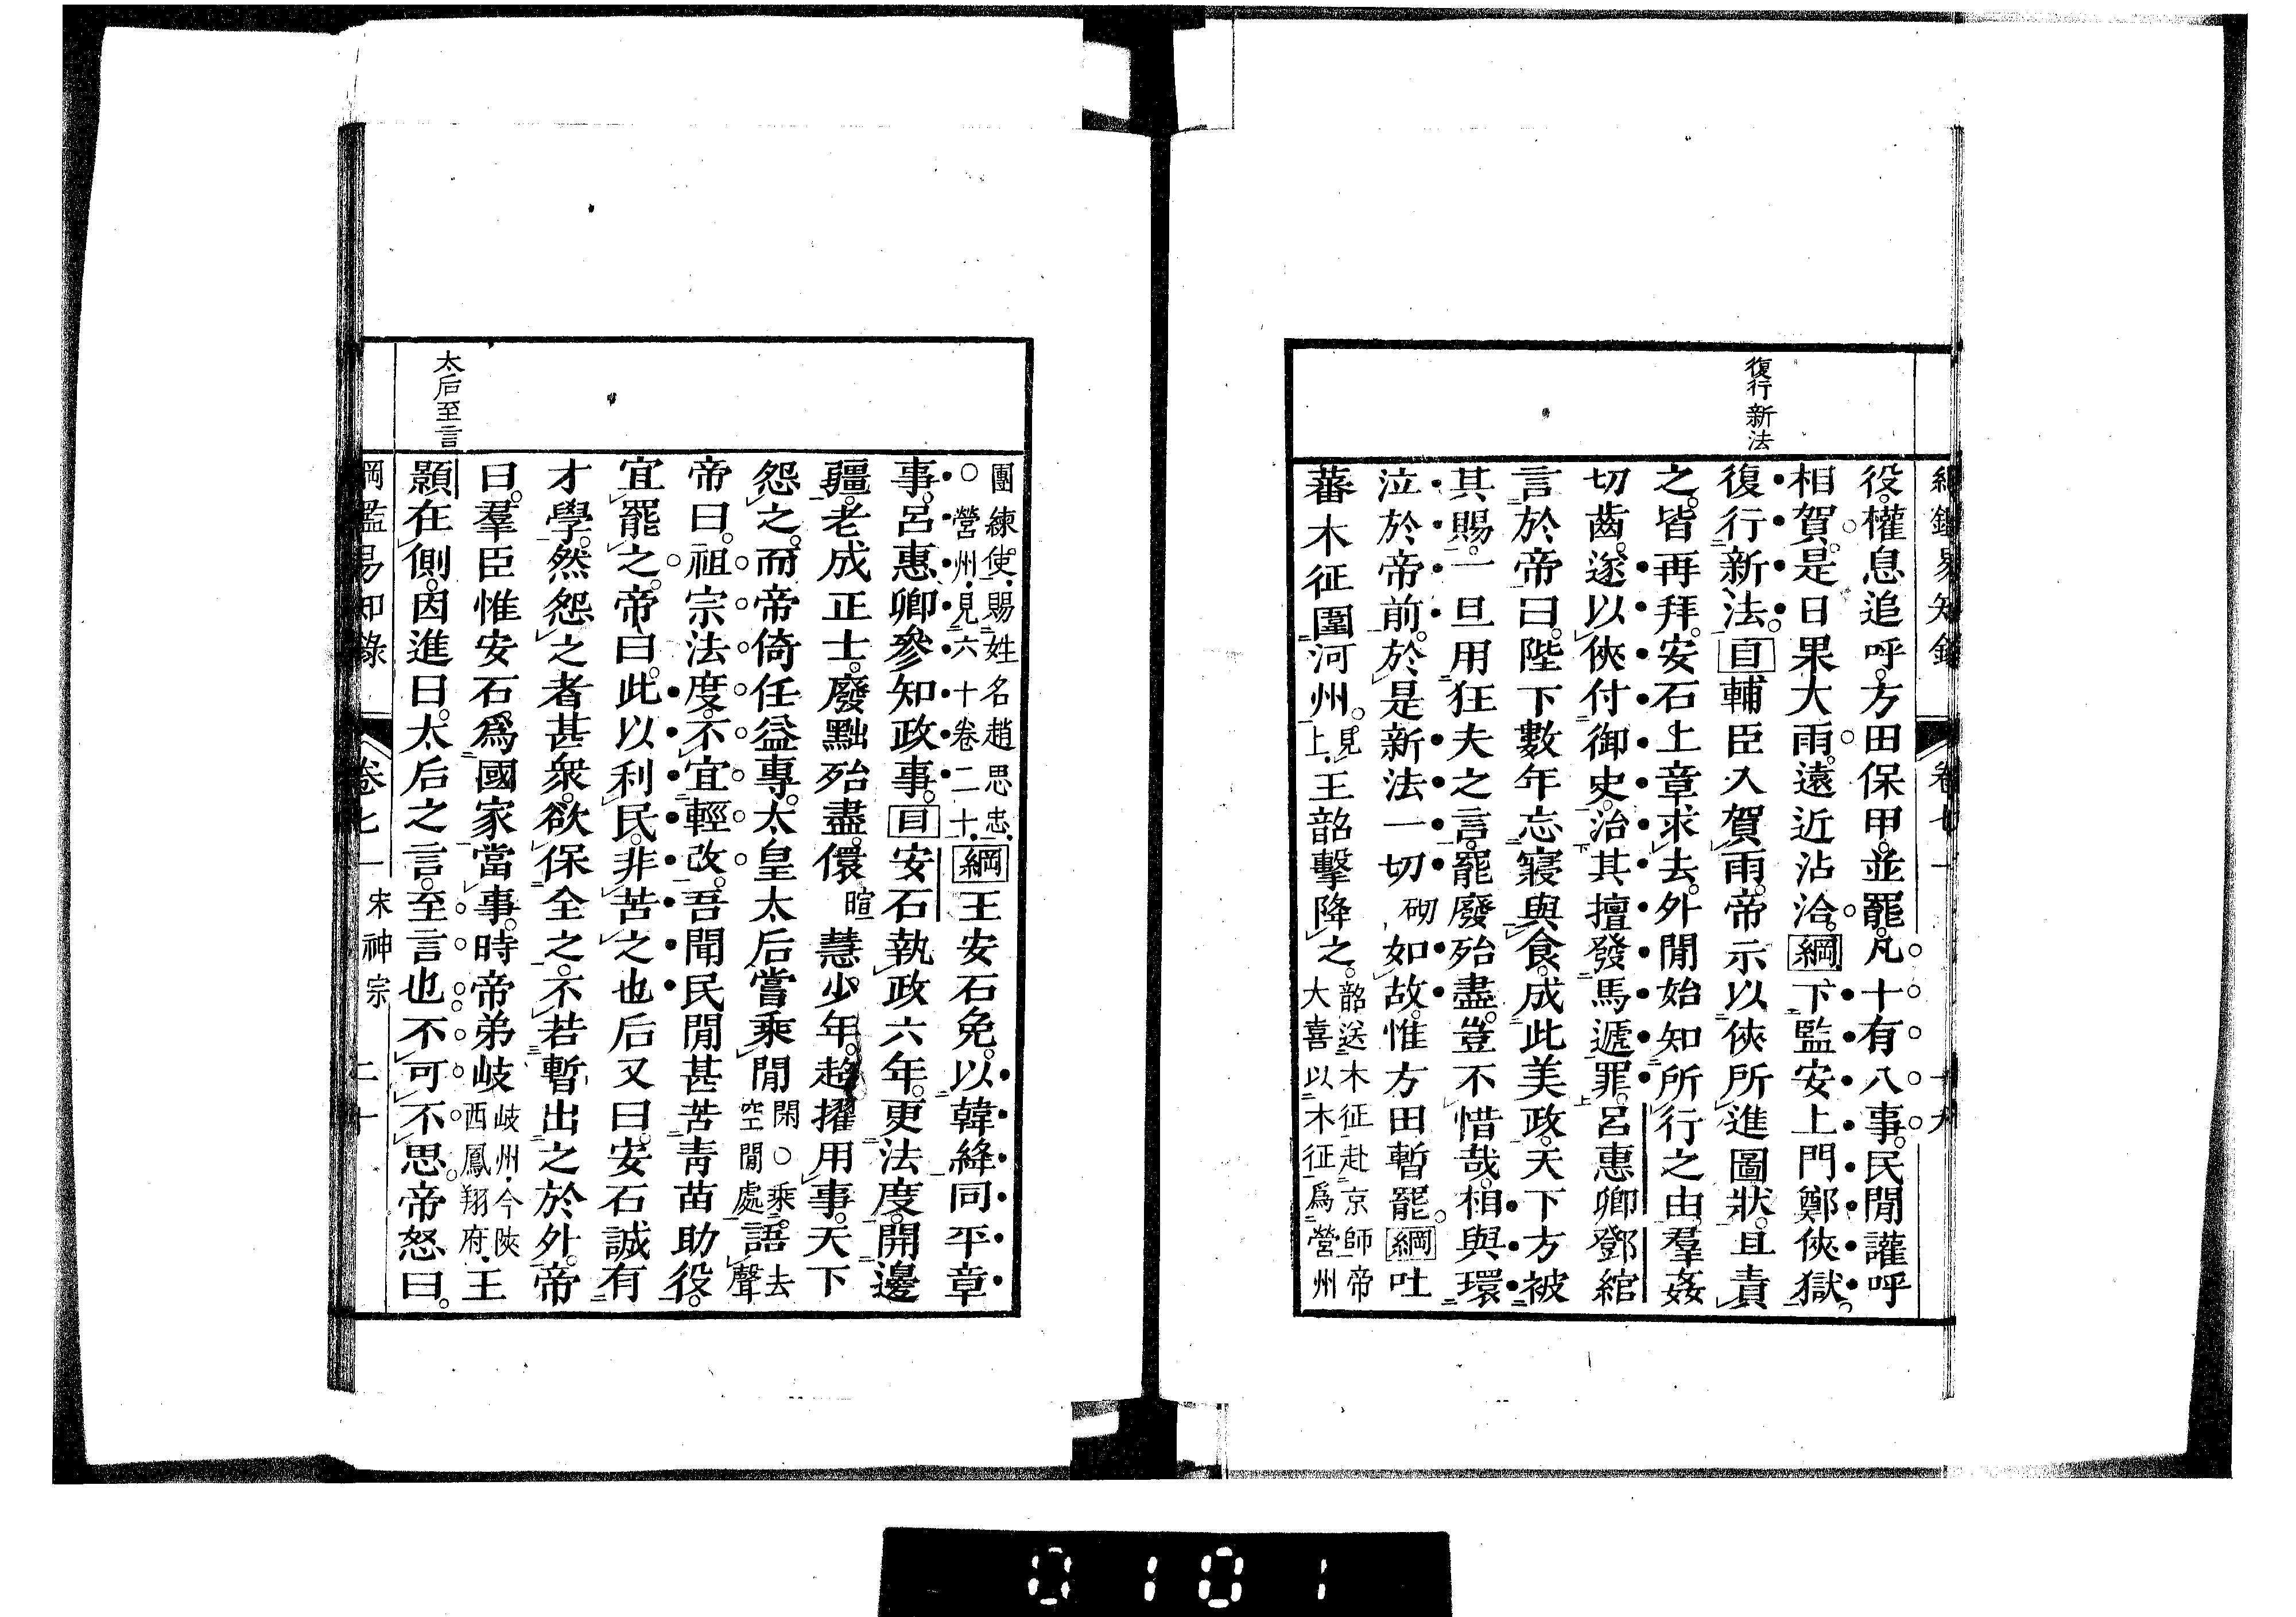 綱鑑易知錄 卷七一 十九
復行新法
役。權息追呼。方田保甲。並罷。凡十有八事。民閒讙呼
相賀。是日果大雨。遠近沾洽。綱下監安上門鄭俠獄。
復行新法。目輔臣入賀雨。帝示以俠所進圖狀。且責
之。皆再拜。安石上章求去。外閒始知所行之由。羣姦
切齒。遂以俠付御史。治其擅發馬遞罪。呂惠卿鄧綰
言於帝曰。陛下數年忘寢與食。成此美政。天下方被
其賜。一旦用狂夫之言。罷廢殆盡。豈不惜哉。相與環
泣於帝前。於是新法一切砌如故。惟方田暫罷。綱吐
蕃木征圍河州。見上。王韶擊降之。韶送木征赴京師帝大喜以木征爲營州
團練使。賜姓名趙思忠。○營州。見六十卷二十。綱王安石免。以韓絳同平章
事。呂惠卿參知政事。目安石執政六年。更法度。開邊
疆。老成正士。廢黜殆盡。儇暄慧少年。超擢用事。天下
怨之。而帝倚任益專。太皇太后嘗乘閒閑○乘空閒處。語去聲
帝曰。祖宗法度。不宜輕改。吾聞民閒甚苦青苗助役。
宜罷之。帝曰。此以利民。非苦之也后又曰。安石誠有
才學。然怨之者甚衆。欲保全之。不若暫出之於外。帝
曰。羣臣惟安石。爲國家當事。時帝弟岐岐州。今陝西鳳翔府。王
顥在側。因進曰。太后之言。至言也。不可不思。帝怒曰。
太后至言
綱鑑易知錄 卷七一 宋神宗 二十
0101